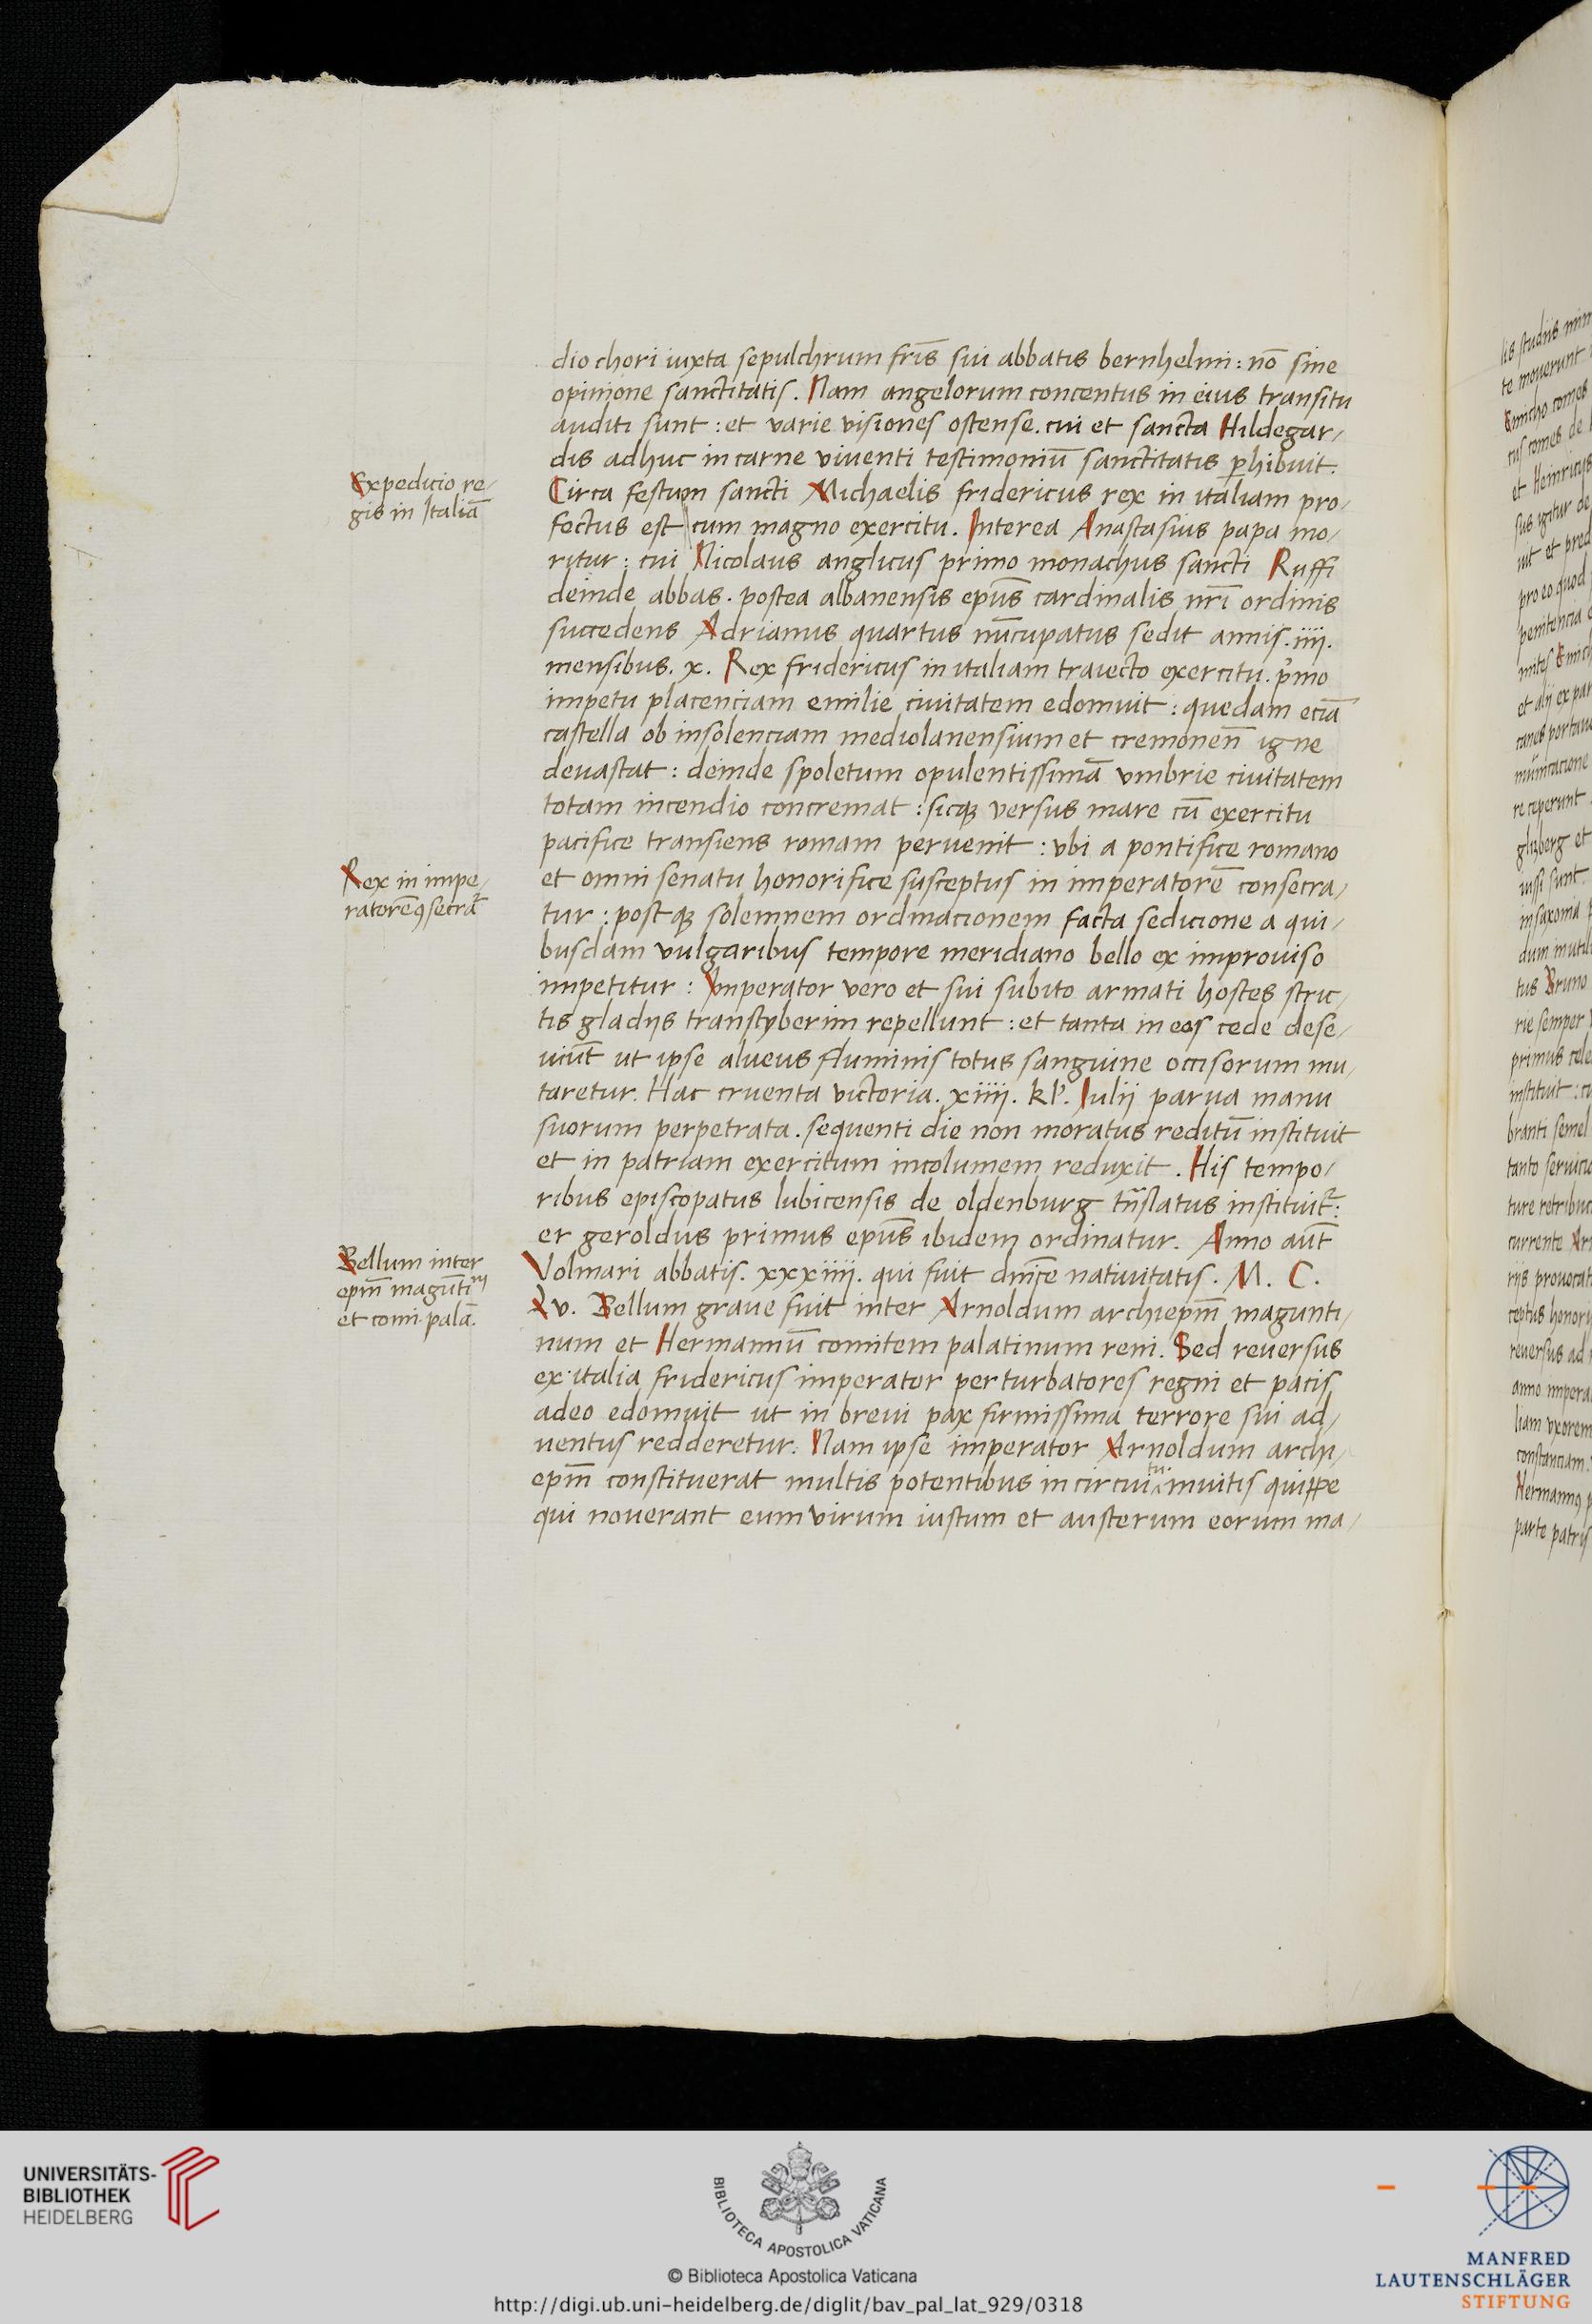 dio chori iuxta sepulchrum fris̄ sui abbatis bernhelmi: nō sine
opinione sanctitatis. Nam angelorum concentus in eius transitu
auditi sunt: et varie visiones ostense. cui et sancta Hildegar/
dis adhuc in carne viventi testimoniū sanctitatis ꝑhibuit.
Expedicio re/
gis in Italiā
Circa festum sancti Michaelis fridericus rex in italiam pro/
fectus est cum magno exercitu. Interea Anastasius papa mo/
ritur: cui Nicolaus anglicus primo monachus sancti Ruffi
deinde abbas. postea albanensis epūs cardinalis nr̄i ordinis
succedens Adrianus quartus nūcupatus sedit annis. iiii.
mensibus. x. Rex fridericus in italiam traiecto exercitu. p̓mo
impetu placenciam emilie civitatem edomuit: quedam eciā
castella ob insolenciam mediolanensium et cremonen̄ igne
devastat: deinde spoletum opulentissimā vmbrie civitatem
totam incendio concremat: sicqꝫ versus mare cū exercitu
pacifice transiens romam pervenit: vbi a pontifice romano
Rex in impe/
ratorē ꝯsecrat̄
et omni senatu honorifice susceptus in imperatorē consecra/
tur: postqꝫ solemnem ordinacionem facta sedicione a qui/
busdam vulgaribus tempore meridiano bello ex improviso
impetitur: Imperator vero et sui subito armati hostes stric/
tis gladijs transtyberim repellunt: et tanta in eos cede dese/
viūt ut ipse alveus fluminis totus sanguine occisorum mu/
taretur. Hac cruenta victoria. xiiii. kl̓. Iulii parva manu
suorum perpetrata. sequenti die non moratus reditū instituit
et in patriam exercitum incolumem reduxit. His tempo/
ribus episcopatus lubicensis de oldenburg tn̄slatus instituit̄:
er geroldus primus epūs ibidem ordinatur. Anno aūt
Bellum inter
epm̄ magūtinū
et comi. palā.
Volmari abbatis. xxxiiii. qui fuit dn̄ice nativitatis. M. C.
Lv. Bellum grave fuit inter Arnoldum archiepm̄ magunti/
num et Hermannū comitem palatinum reni. Sed reversus
ex italia fridericus imperator perturbatores regni et pacis
adeo edomuit ut in brevi pax firmissima terrore sui ad/
ventus redderetur. Nam ipse imperator Arnoldum archi/
epm̄ constituerat multis potentibus in circuitu invitis quippe
qui noverant eum virum iustum et austerum eorum ma/
lis studiis
te moverunt
Emicho comes
cus comes de
et Heinricus
sus igitur de
nit et pred
pro eo quod
penitencia
mites Emich
et alij ex par
canes portav
receperunt
glizberg et
iussi sunt
in saxonia
dum mutil
tus Bruno
rie semper
primus cele
instituit: cu
branti semel
tanto servicio
ture retribuc
currente Ar
rijs provocat
ceptus honori
reversus ad
anno impera
liam vxorem
constanciam.
Hermannꝰ p
parte patris
UNIVERSITÄTS-
BIBLIOTHEK
HEIDELBERG
BIBLIOTECA APOSTOLICA VATICANA
© Biblioteca Apostolica Vaticana
http://digi.ub.uni-heidelberg.de/diglit/bav_pal_lat_929/0318
MANFRED
LAUTENSCHLÄGER
STIFTUNG